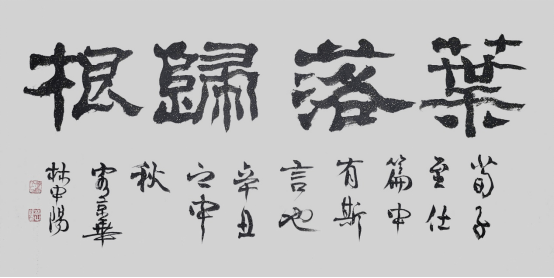 葉落歸根
荀子
至仕
篇中
有斯
言也
辛丑
之中
秋
京華
林中陽